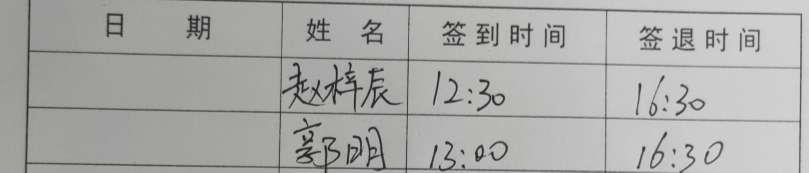 日期 姓名 签到时间 签退时间
赵梓辰 12:30 16:30
郭明 13:00 16:30